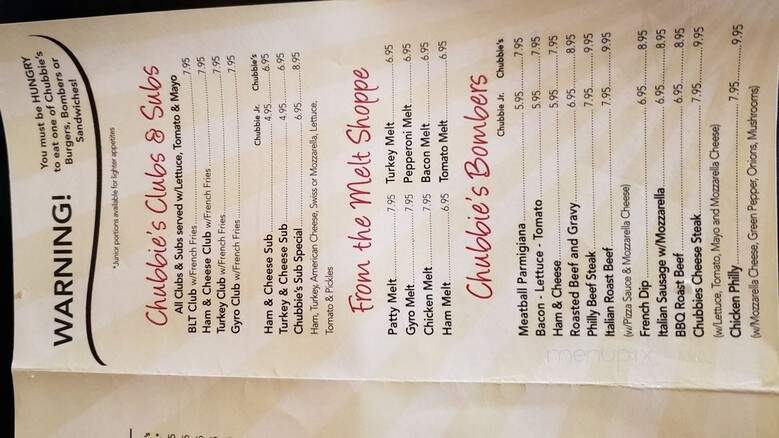 WARNING!
You must be HUNGRY
to eat one of Chubbie's
Burgers, Bombers or
Sandwiches!
*Junior portions available for lighter appetites
Chubbie's Clubs & Subs
All Clubs & Subs served w/Lettuce, Tomato & Mayo
BLT Club w/French Fries 7.95
Ham & Cheese Club w/French Fries 7.95
Turkey Club w/French Fries 7.95
Gyro Club w/French Fries 7.95
Chubbie Jr. Chubbie's
Ham & Cheese Sub 4.95 6.95
Turkey & Cheese Sub 4.95 6.95
Chubbie's Sub Special 6.95 8.95
Ham, Turkey, American Cheese, Swiss or Mozzarella, Lettuce,
Tomato & Pickles
From the Melt Shoppe
Patty Melt 7.95 Turkey Melt 6.95
Gyro Melt 7.95 Pepperoni Melt 6.95
Chicken Melt 7.95 Bacon Melt 6.95
Ham Melt 6.95 Tomato Melt 6.95
Chubbie's Bombers
Chubbie Jr. Chubbie's
Meatball Parmigiana 5.95 7.95
Bacon - Lettuce - Tomato 5.95 7.95
Ham & Cheese 5.95 7.95
Roasted Beef and Gravy 6.95 8.95
Philly Beef Steak 7.95 9.95
Italian Roast Beef 7.95 9.95
(w/Pizza Sauce & Mozzarella Cheese)
French Dip 6.95 8.95
Italian Sausage w/Mozzarella 6.95 8.95
BBQ Roast Beef 6.95 8.95
Chubbies Cheese Steak 7.95 9.95
(w/Lettuce, Tomato, Mayo and Mozzarella Cheese)
Chicken Philly 7.95 9.95
(w/Mozzarella Cheese, Green Pepper, Onions, Mushrooms)
menupix